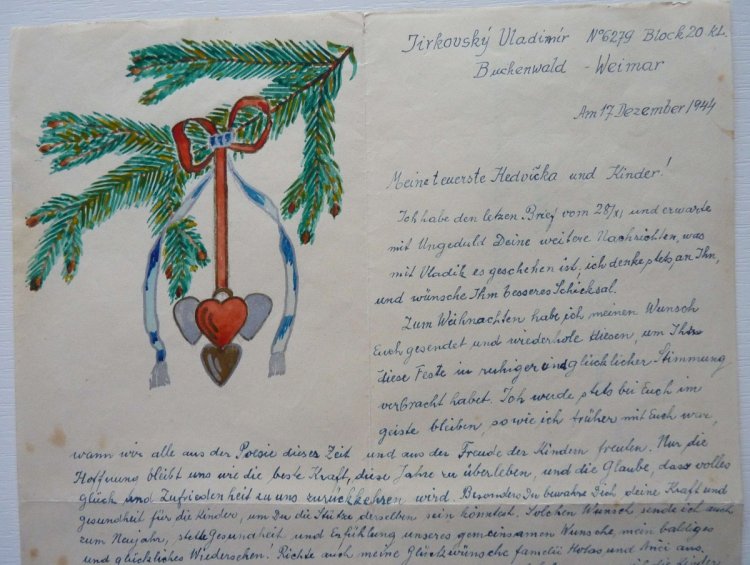 Jirkovský Vladimír No 6279 Block 20 kL.
Buchenwald - Weimar
Am 17 Dezember 1944
Meine teuerste Hedvička und Kinder!
Ich habe den letzen Brief vom 28/XI und erwarte
mit Ungeduld Deine weitere Nachrichten, was
mit Vladik es geschehen ist, ich denke stets, an Ihn,
und wünsche Ihm besseres Schicksal.
Zum Weihnachten habe ich meinen Wunsch
Euch gesendet und wiederhole diesen, um Ihr
diese Feste in ruhiger und glücklicher Stimmung
verbracht habet. Ich werde stets bei Euch im
geiste bleiben, so wie ich früher mit Euch war,
wann wir alle aus der Poesie dieser Zeit und aus der Freude der Kindern freuten. Nur die
Hoffnung bleibt uns wie die beste Kraft, diese Jahre zu überleben, und die Glaube, dass volles
glück und Zufriedenheit zu uns zurückkehren wird. Besonders Du bewahre Dich, deine Kraft und
gesundheit für die Kinder, um Du die Stütze derselben sein könntest. Solchen Wunsch sende ich auch
zum Neujahr, stelle Gesundheit und Erfühlung unseres gemeinsamen Wunsche, mein baldiges
und glückliches Wiedersehen! Richte auch meine Glückwünsche familii Holas und Anči aus.
die Kinder